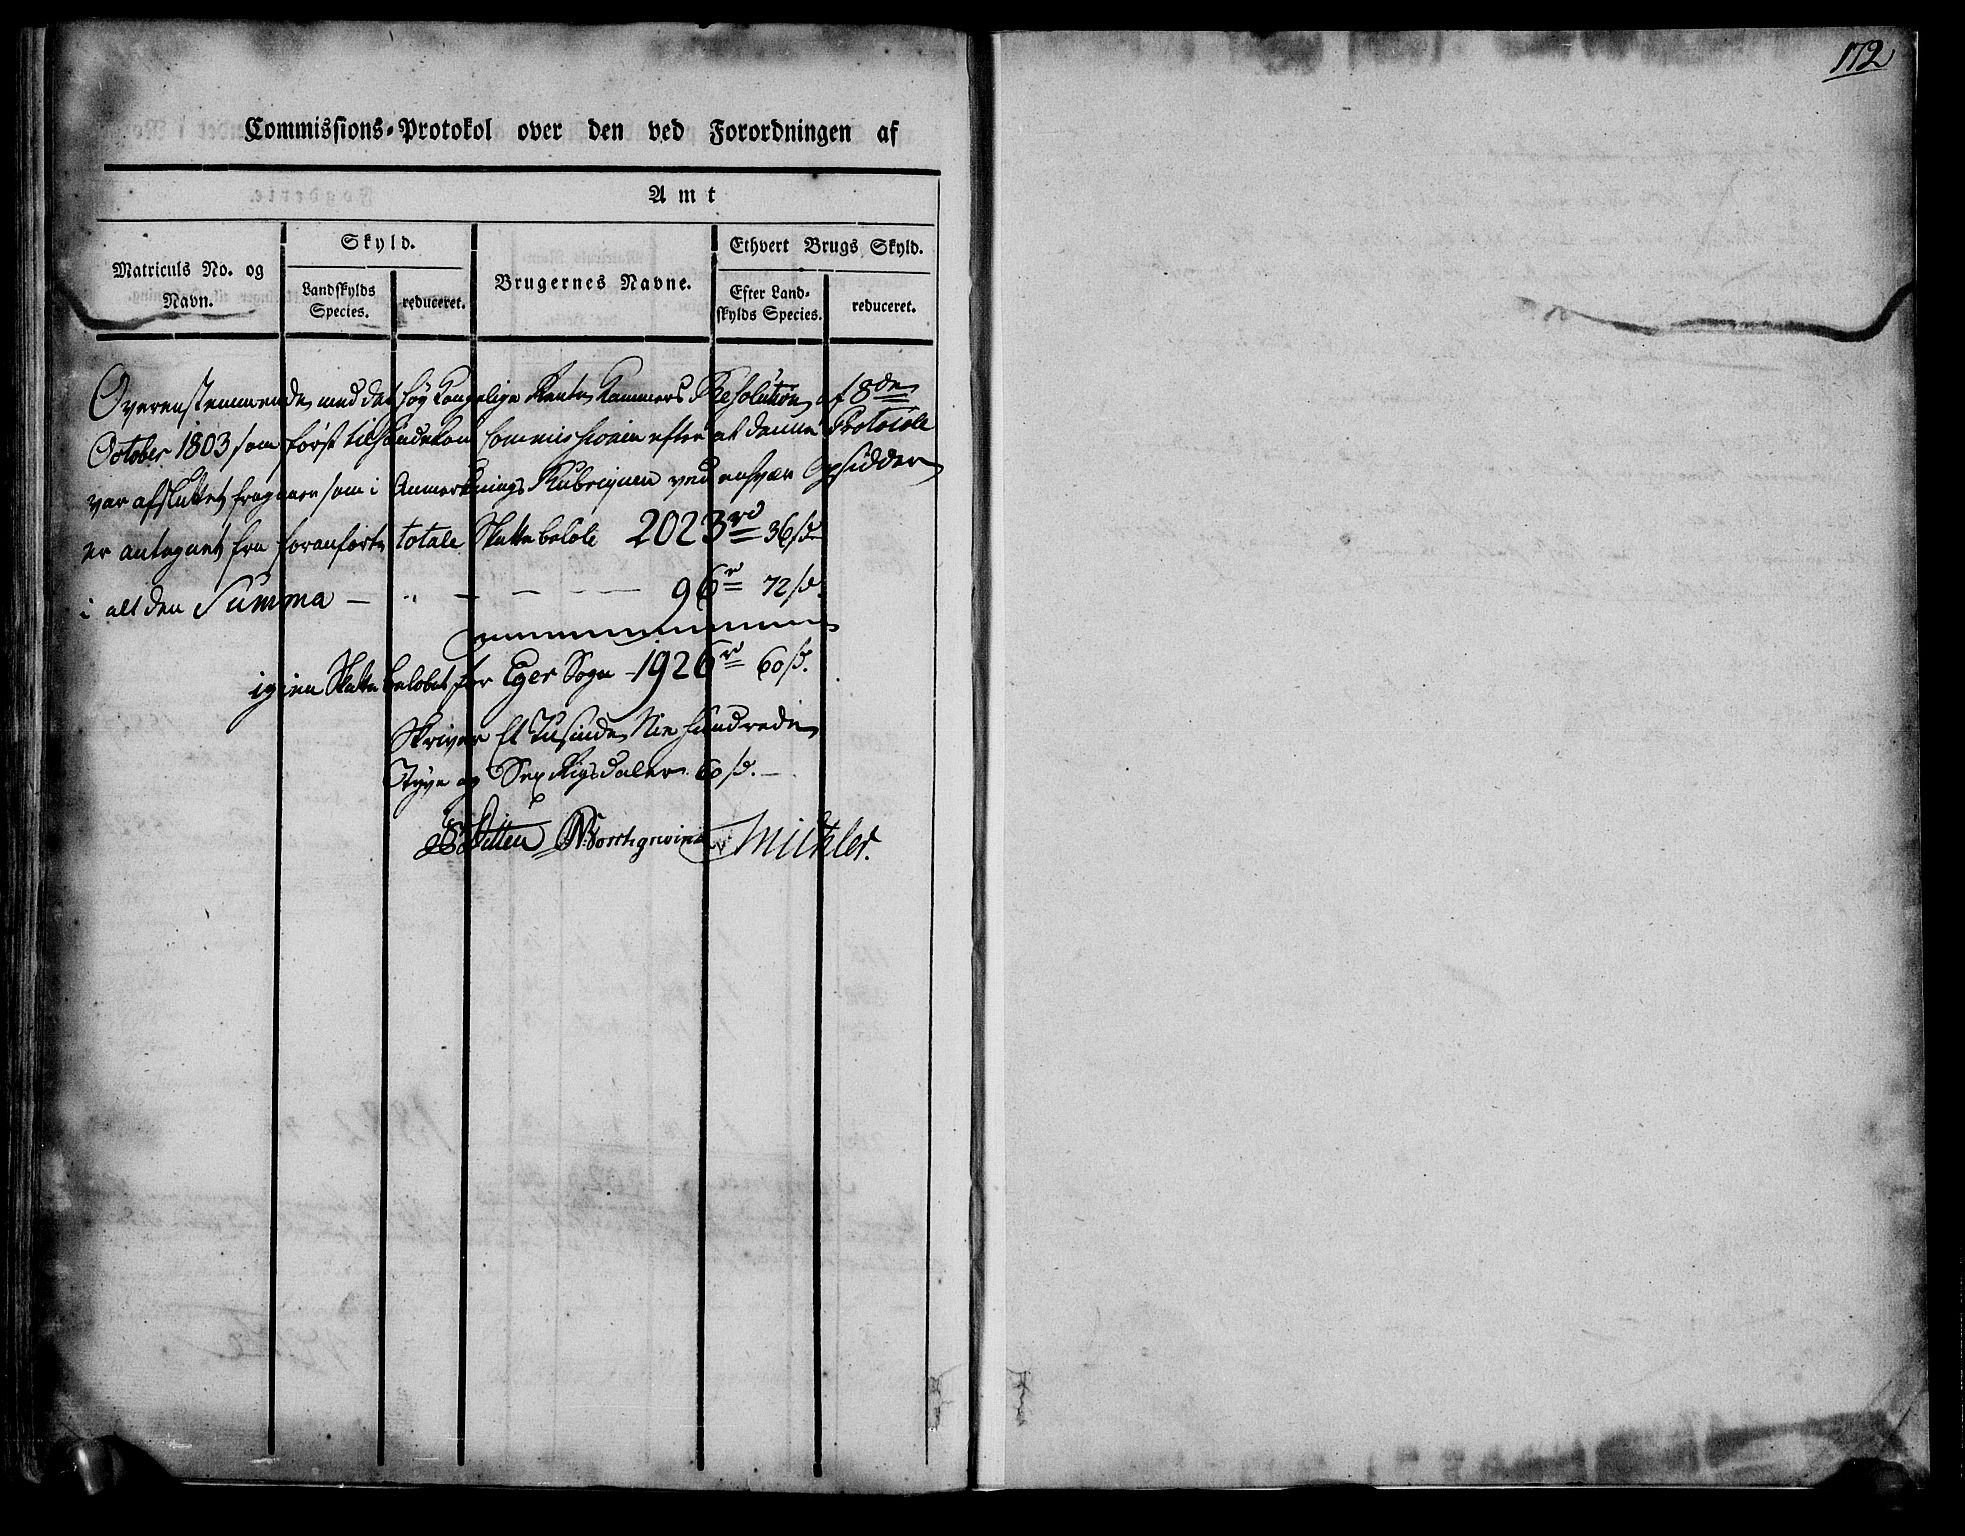 172
Commissions-Protokol over den ved Forordningen af
Amt
Matriculs No. og Navn.
Skyld.
Landskylds Species.
reduceret.
Brugernes Navne.
Ethvert Brugs Skyld.
Efter Landskylds Species.
reduceret.
Overenstemmende med det høy Kongelige Rente Kammers Resolution af 8de
October 1803 som først tilhændekom Commissionen efter at denne Protocole
var afsluttet fragaaer som i Anmerknings Rubriquen ved enhver Opsidder
er antegnet fra foranførte totale Skatte beløb 2023 rd 36 s.
i alt den Summa — — — — 96 r 72 s.
igien Skatte beløbet for Eger Sogn - 1926 rd 60 s.
Skriver Et Tusinde Nie Hundrede
Tyve og Sex Rigsdaler 60 s. —
Michler.